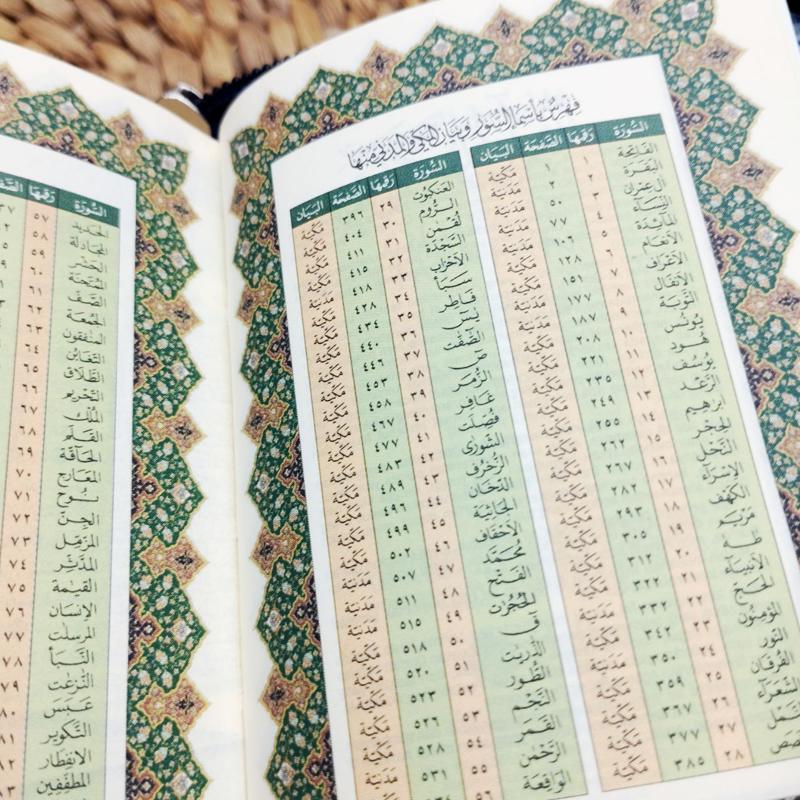 فهرس بأسماء السور وبيان المكي والمدني منها
السورة رقمها الصفحة البيان
الفاتحة ١ ١ مكية
البقرة ٢ ٢ مدنية
آل عمران ٣ ٥٠ مدنية
النساء ٤ ٧٧ مدنية
المائدة ٥ ١٠٦ مدنية
الأنعام ٦ ١٢٨ مكية
الأعراف ٧ ١٥١ مكية
الأنفال ٨ ١٧٧ مدنية
التوبة ٩ ١٨٧ مدنية
يونس ١٠ ٢٠٨ مكية
هود ١١ ٢٢١ مكية
يوسف ١٢ ٢٣٥ مكية
الرعد ١٣ ٢٤٩ مدنية
إبرهيم ١٤ ٢٥٥ مكية
الحجر ١٥ ٢٦٢ مكية
النحل ١٦ ٢٦٧ مكية
الإسراء ١٧ ٢٨٢ مكية
الكهف ١٨ ٢٩٣ مكية
مريم ١٩ ٣٠٥ مكية
طه ٢٠ ٣١٢ مكية
الأنبياء ٢١ ٣٢٢ مكية
الحج ٢٢ ٣٣٢ مدنية
المؤمنون ٢٣ ٣٤٢ مكية
النور ٢٤ ٣٥٠ مدنية
الفرقان ٢٥ ٣٥٩ مكية
الشعراء ٢٦ ٣٦٧ مكية
النمل ٢٧ ٣٧٧ مكية
القصص ٢٨ ٣٨٥ مكية
السورة رقمها الصفحة البيان
العنكبوت ٢٩ ٣٩٦ مكية
الروم ٣٠ ٤٠٤ مكية
لقمن ٣١ ٤١١ مكية
السجدة ٣٢ ٤١٥ مكية
الأحزاب ٣٣ ٤١٨ مدنية
سبأ ٣٤ ٤٢٨ مكية
فاطر ٣٥ ٤٣٤ مكية
يس ٣٦ ٤٤٠ مكية
الصفت ٣٧ ٤٤٦ مكية
ص ٣٨ ٤٥٣ مكية
الزمر ٣٩ ٤٥٨ مكية
غافر ٤٠ ٤٦٧ مكية
فصلت ٤١ ٤٧٧ مكية
الشورى ٤٢ ٤٨٣ مكية
الزخرف ٤٣ ٤٨٩ مكية
الدخان ٤٤ ٤٩٦ مكية
الجاثية ٤٥ ٤٩٩ مكية
الأحقاف ٤٦ ٥٠٢ مكية
محمد ٤٧ ٥٠٧ مدنية
الفتح ٤٨ ٥١١ مدنية
الحجرت ٤٩ ٥١٥ مدنية
ق ٥٠ ٥١٨ مكية
الذريت ٥١ ٥٢٠ مكية
الطور ٥٢ ٥٢٣ مكية
النجم ٥٣ ٥٢٦ مكية
القمر ٥٤ ٥٢٨ مكية
الرحمن ٥٥ ٥٣١ مدنية
الواقعة ٥٦
السورة رقمها
الحديد ٥٧
المجادلة ٥٨
الحشر ٥٩
الممتحنة ٦٠
الصف ٦١
الجمعة ٦٢
المنفقون ٦٣
التغابن ٦٤
الطلاق ٦٥
التحريم ٦٦
الملك ٦٧
القلم ٦٨
الحاقة ٦٩
المعارج ٧٠
نوح ٧١
الجن ٧٢
المزمل ٧٣
المدثر ٧٤
القيمة ٧٥
الإنسان ٧٦
المرسلت ٧٧
النبأ ٧٨
النزعت ٧٩
عبس ٨٠
التكوير ٨١
الانفطار ٨٢
المطففين ٨٣